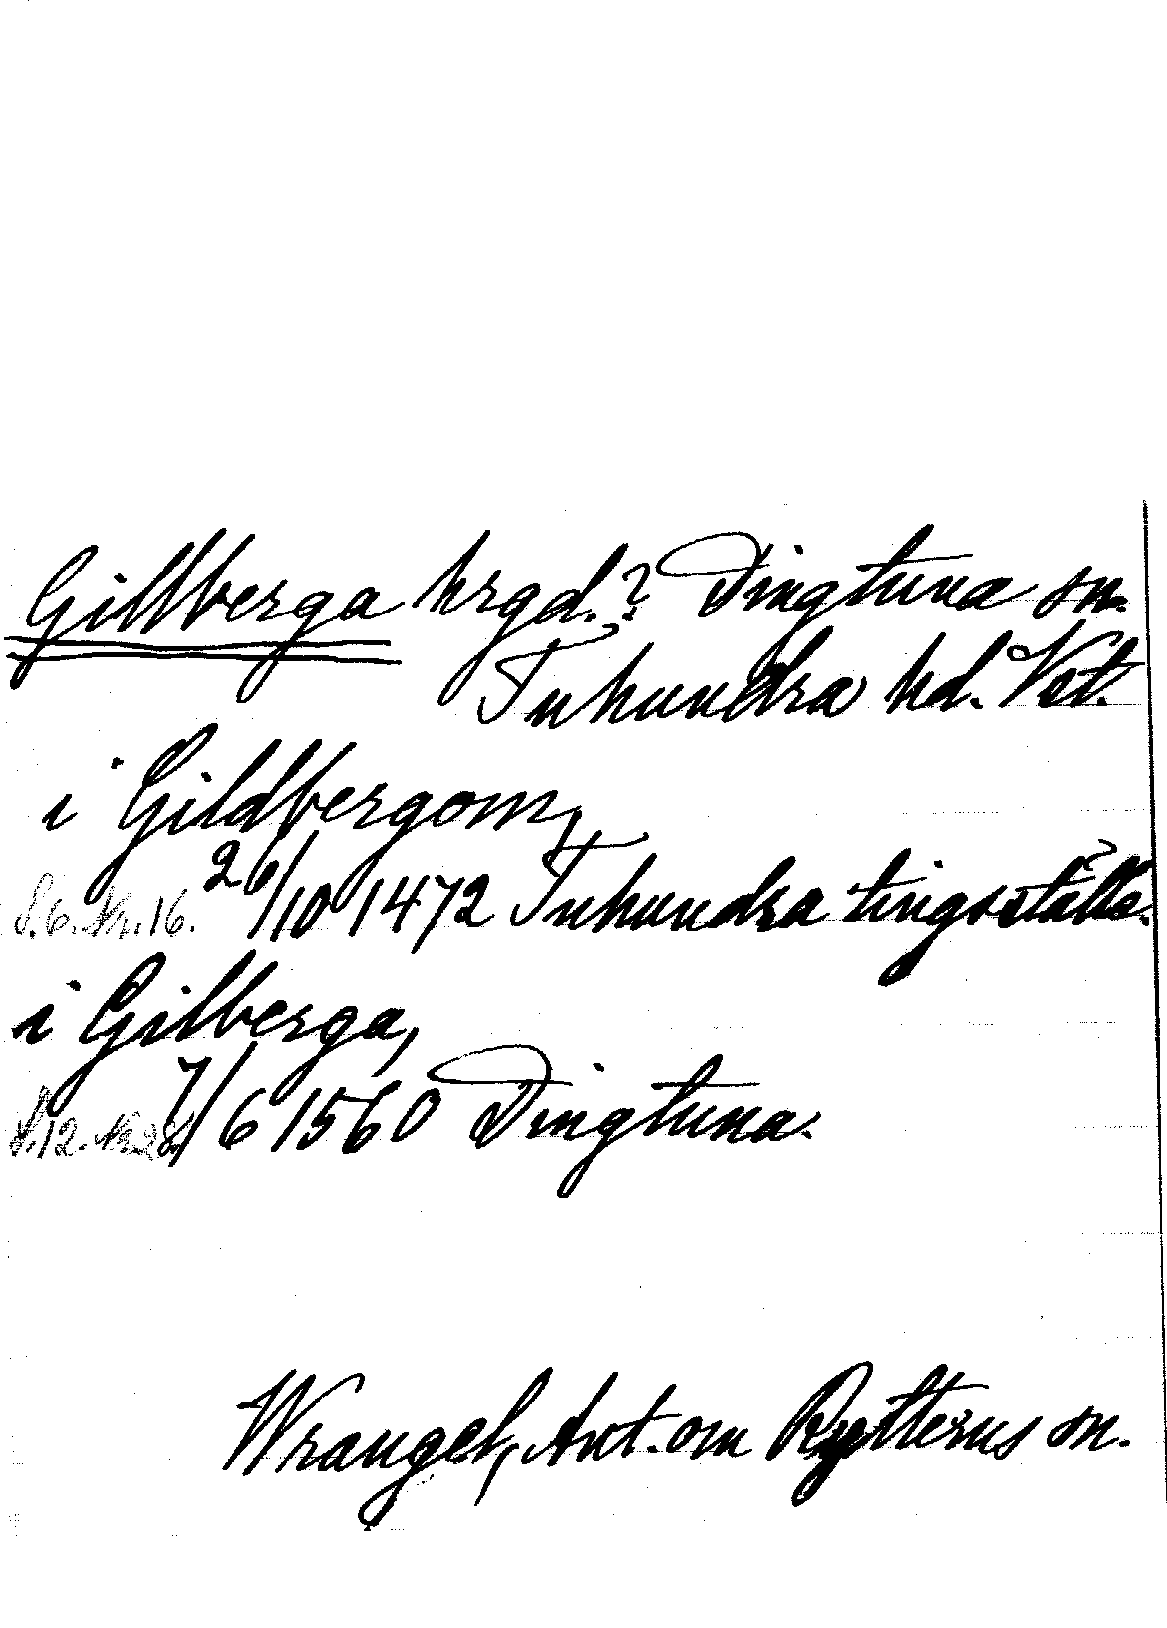 Gillberga hrgd.? Dingtuna sn.
Tuhundra hd. Vst.
i Gildbergom,
S. 6. Nr. 16. 26/10 1472 Tuhundra tingsställe.
i Gilberga,
S. 12. Nr. 28. 7/6 1560 Dingtuna.
Wrangel, Ant. om Rytterns sn.